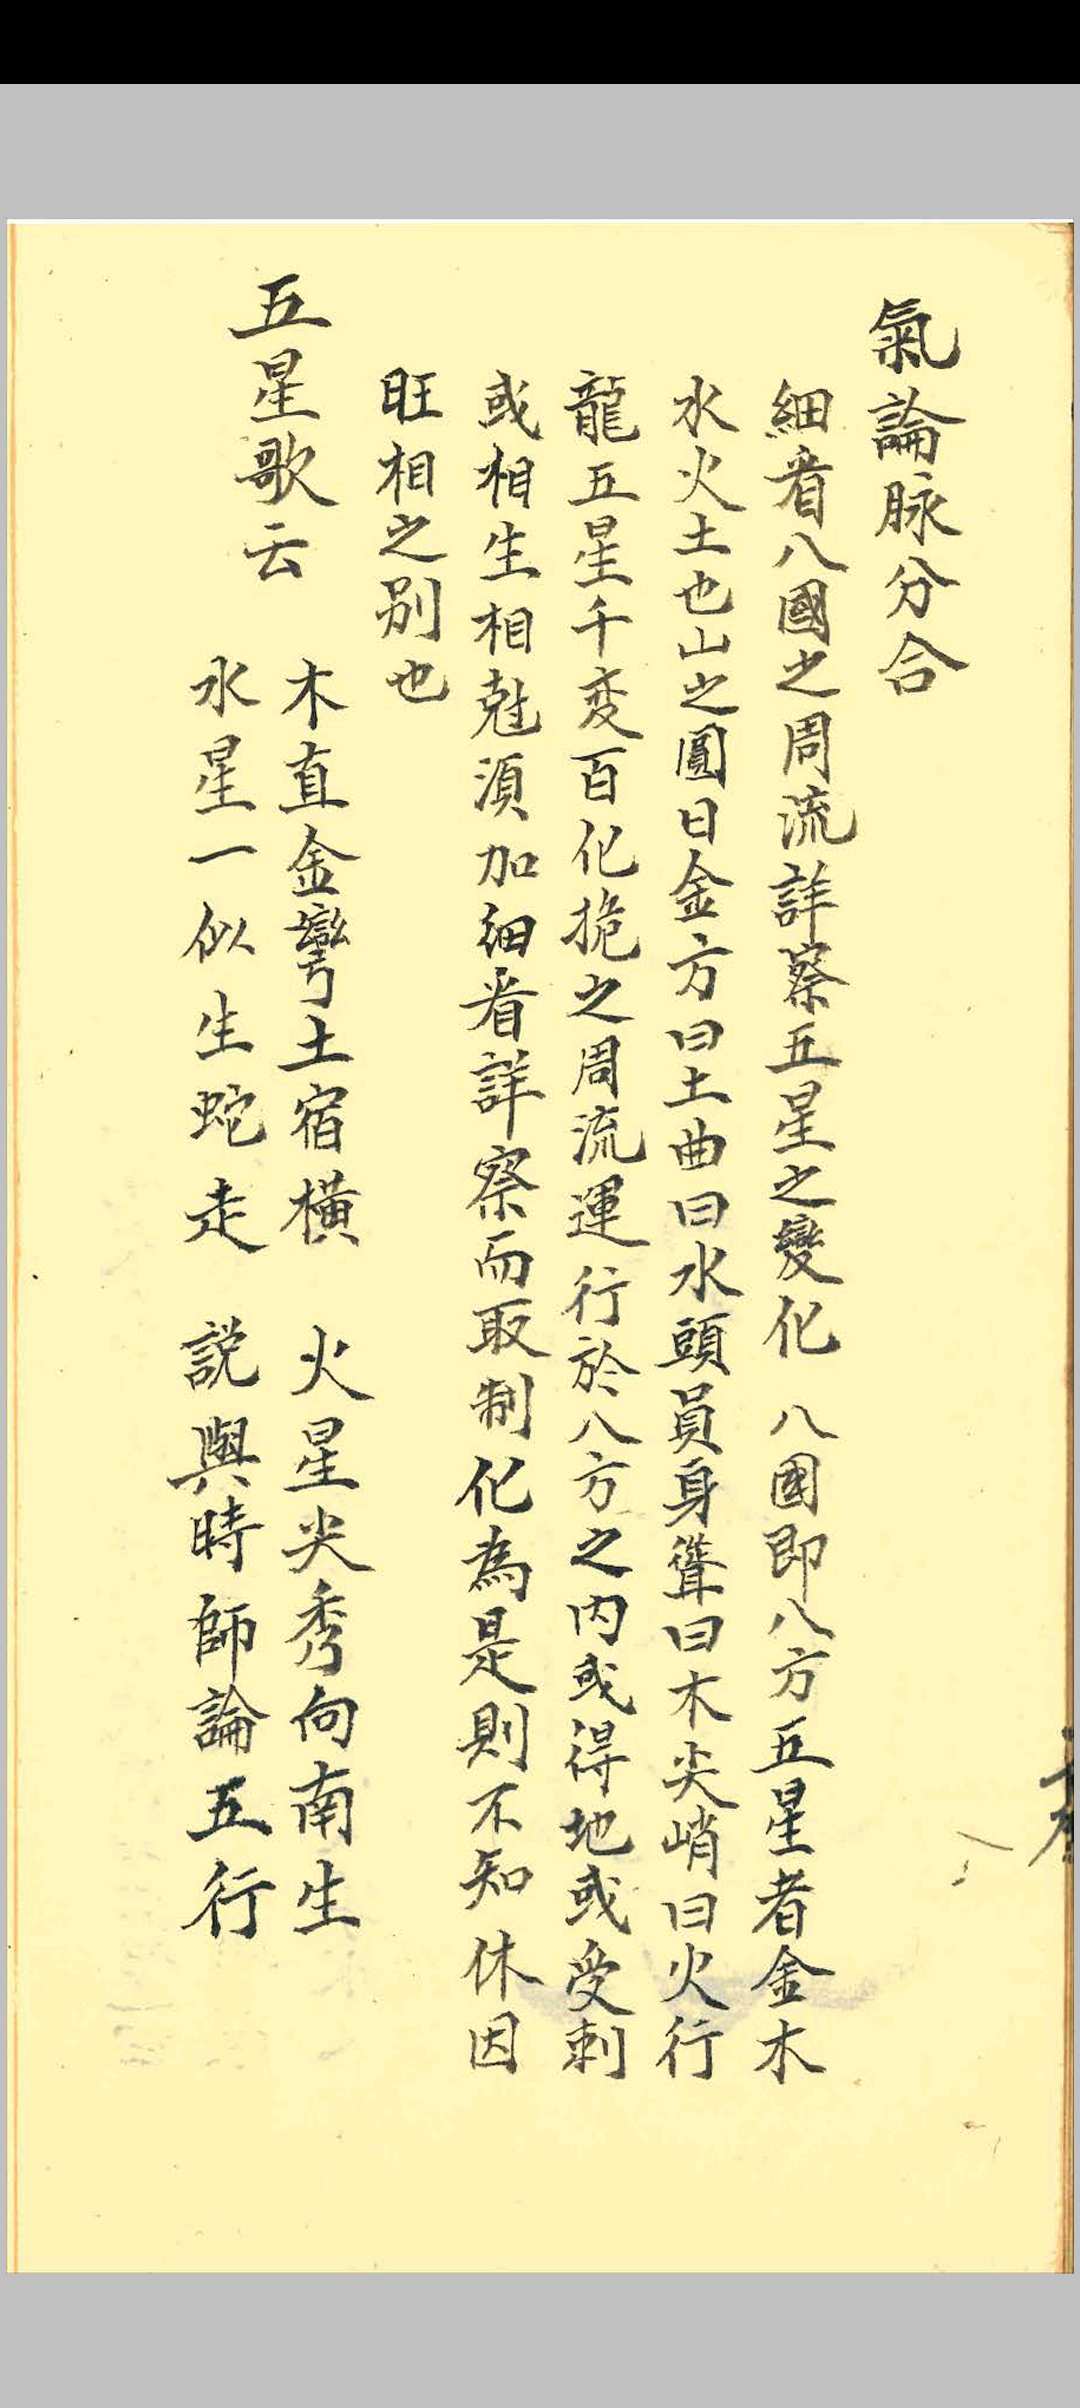 氣論脉分合
細看八國之周流詳察五星之變化 八國即八方五星者金木
水火土也山之圓曰金方曰土曲曰水頭員身聳曰木尖峭曰火行
龍五星千変百化㧪之周流運行於八方之内或得地或受刺
或相生相尅湏加細看詳察而取制化為是則不知休因
旺相之别也
五星歌云
木直金彎土宿橫 火星尖秀向南生
水星一似生蛇走 説與時師論五行